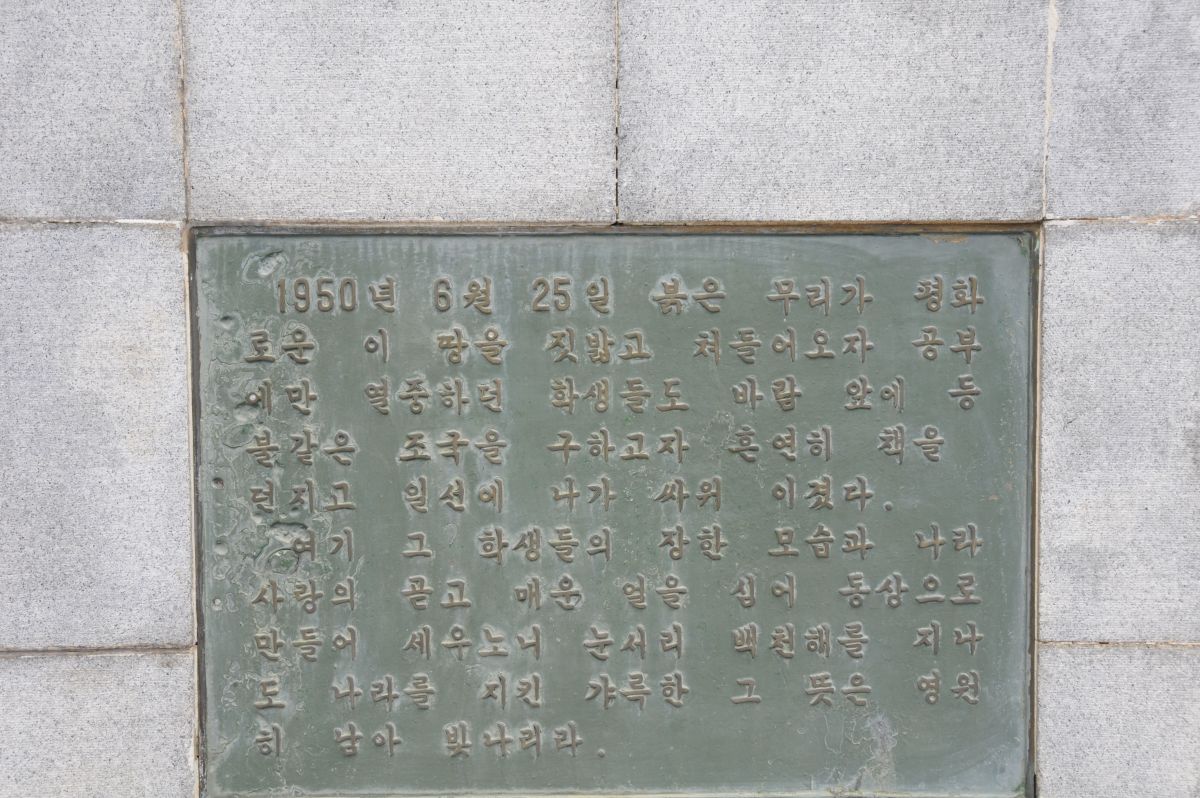 1950년 6월 25일 붉은 무리가 평화
로운 이 땅을 짓밟고 처들어오자 공부
에만 열중하던 학생들도 바람 앞에 등
불같은 조국을 구하고자 흔연히 책을
던지고 일선에 나가 싸워 이겼다.
여기 그 학생들의 장한 모습과 나라
사랑의 곧고 매운 얼을 심어 동상으로
만들어 세우노니 눈서리 백천해를 지나
도 나라를 지킨 갸륵한 그 뜻은 영원
히 남아 빛나리라.